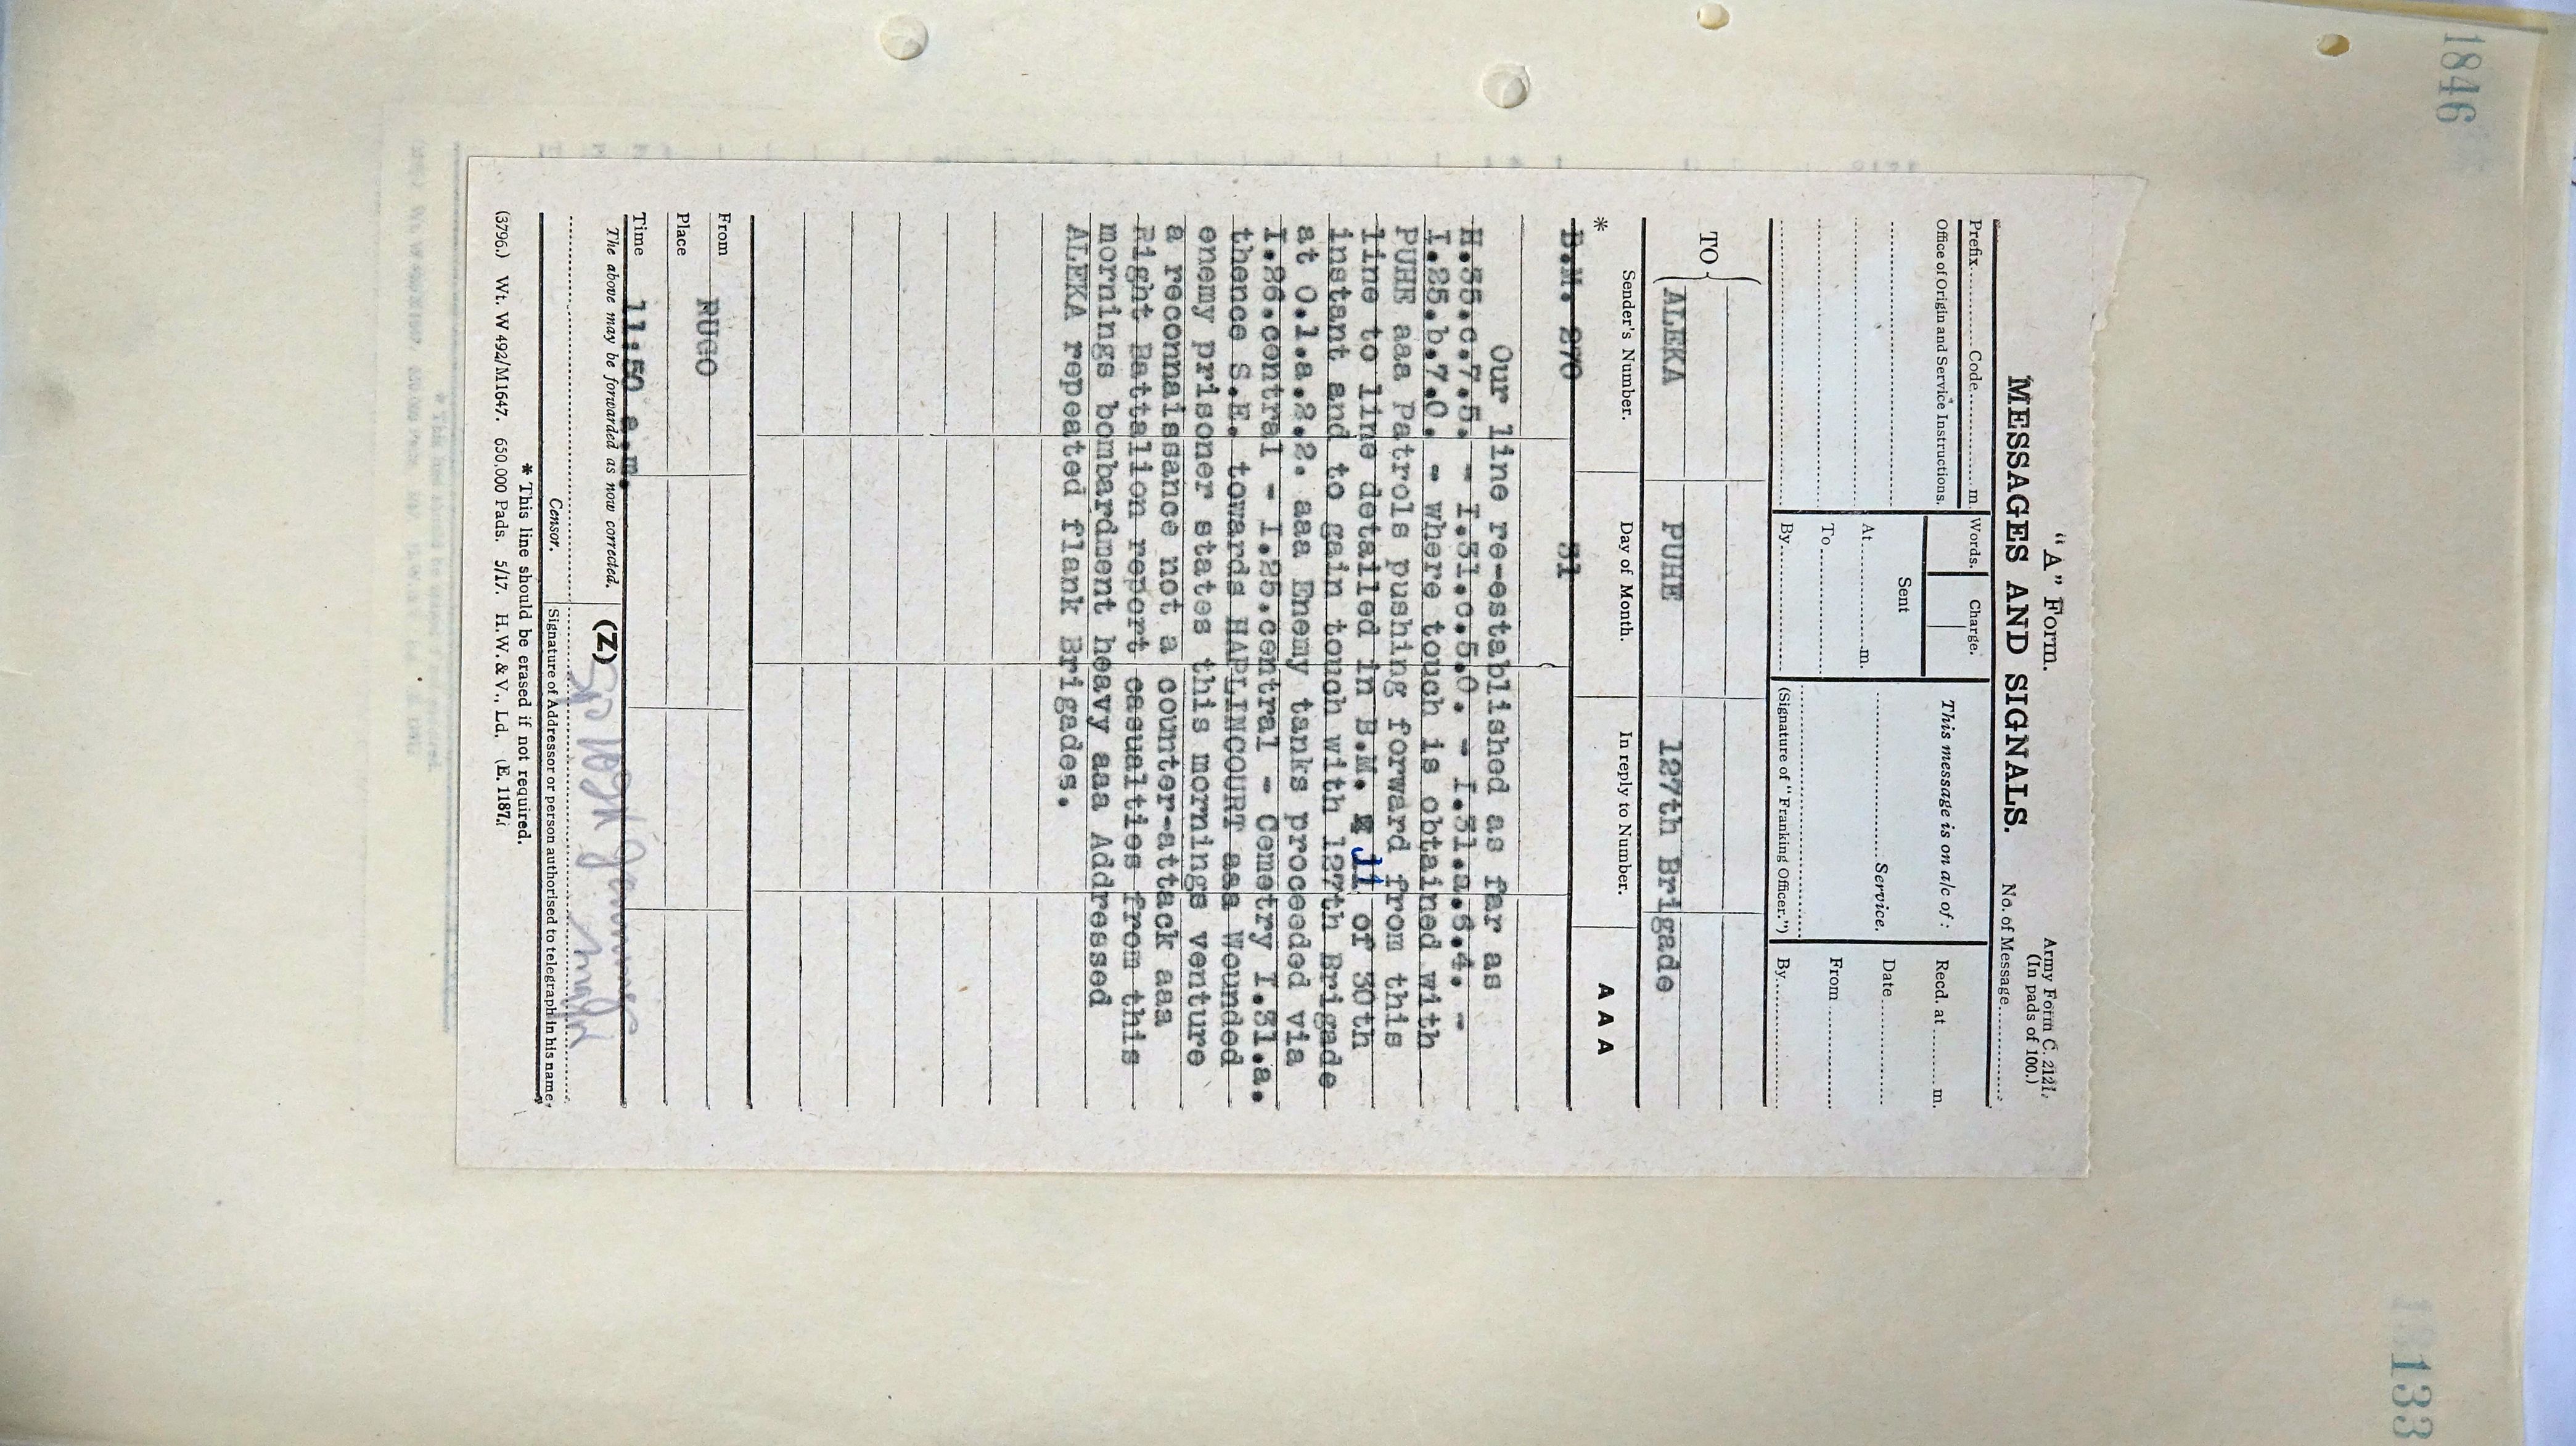 1846
"A" Form.
Army Form C. 2121.
(In pads of 100.)
MESSAGES AND SIGNALS.
No. of Message
Prefix Code m.
Words.
Charge.
This message is on a/c of:
Recd. at m.
Office of Origin and Service Instructions.
Sent
At m.
Service.
Date
To
From
By
(Signature of "Franking Officer.")
By
TO
ALEKA PUHE 127th Brigade
* Sender's Number. Day of Month. In reply to Number. AAA
B.M. 270 31
Our line re-established as far as
H.35.c.7.5. - I.31.c.5.0. - I.31.a.6.4. -
I.25.b.7.0. - where touch is obtained with
PUHE aaa Patrols pushing forward from this
line to line detailed in B.M. 11 of 30th
instant and to gain touch with 127th Brigade
at O.1.a.2.2. aaa Enemy tanks proceeded via
I.26.contral - I.25.central - Cemetry I.31.a.
thence S.E. towards HAPLINCOURT aaa Wounded
enemy prisoner states this mornings venture
a reconnaissance not a counter-attack aaa
Right Battalion report casualties from this
mornings bombardment heavy aaa Addressed
ALEKA repeated flank Brigades.
From RUGO
Place
Time 11:50 a.m.
The above may be forwarded as now corrected. (Z)
Censor.
Signature of Addressor or person authorised to telegraph in his name.
* This line should be erased if not required.
(3796.) Wt. W 492/M1647. 650,000 Pads. 5/17. H.W. & V., Ld. (E. 1187.)
133